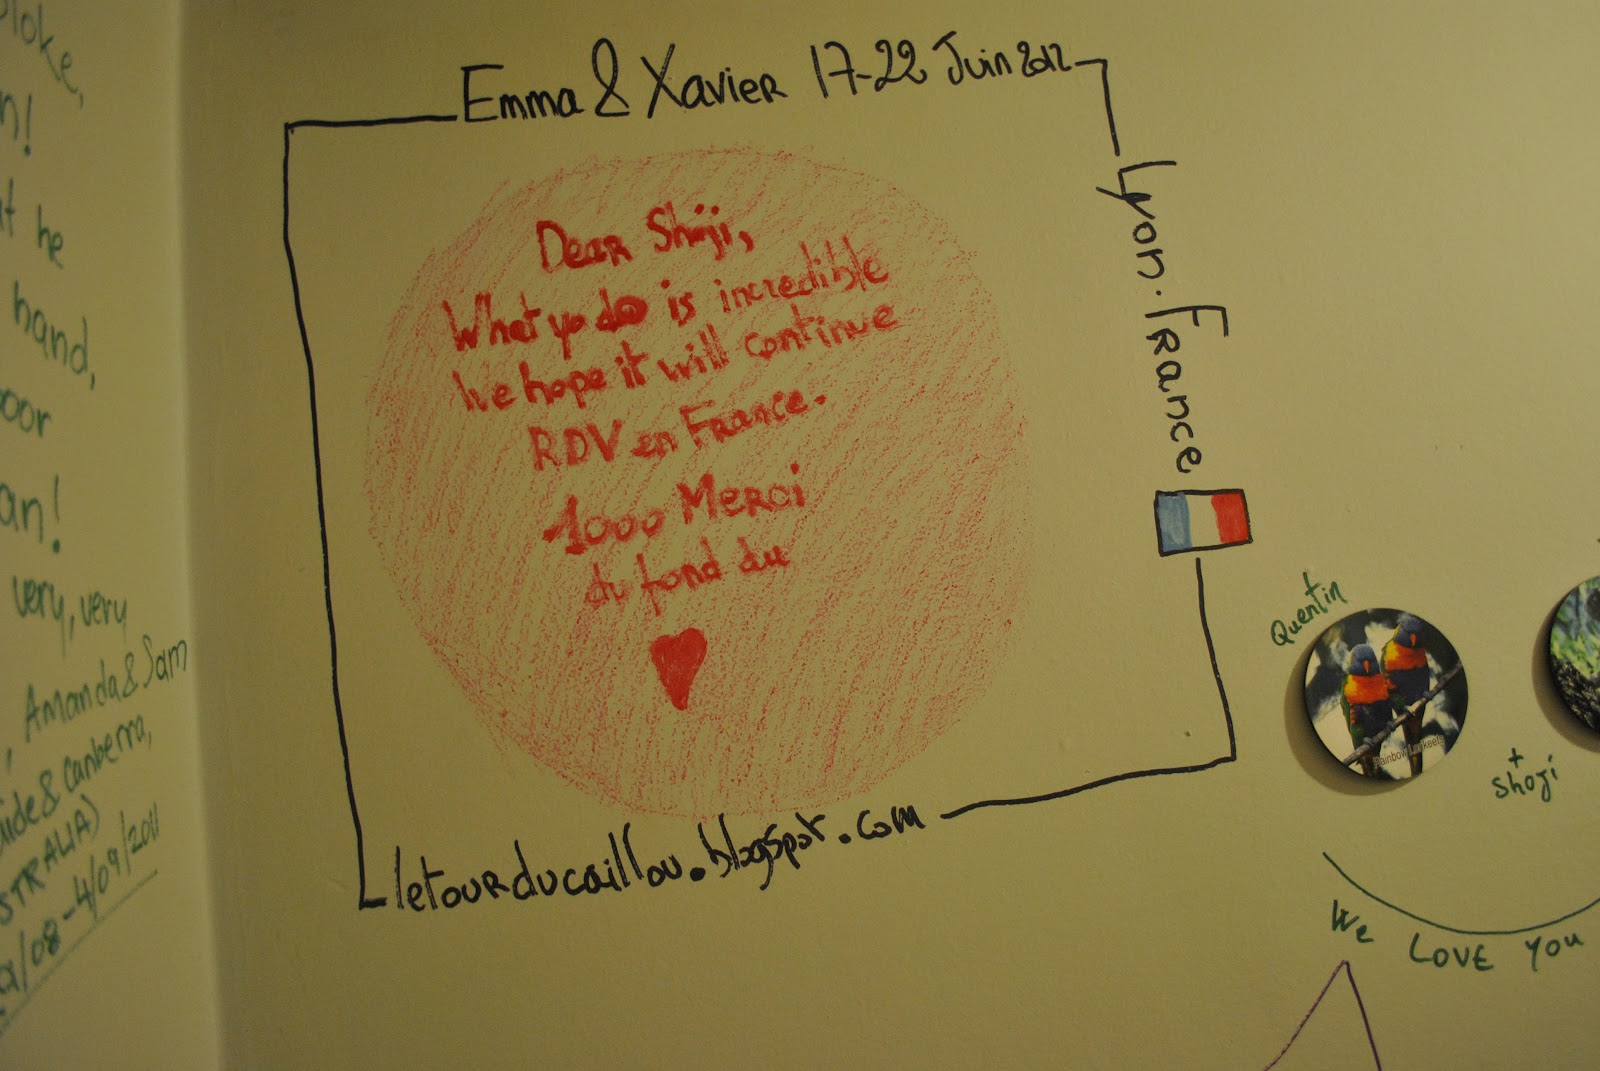 loke,
n!
t he
hand,
oor
an!
very, very
, Amanda & Sam
ide & Canberra,
STRALIA)
/08 - 4/09/2011
Emma & Xavier 17-22 Juin 2012
Lyon. France
Dear Shoji,
What yo do is incredible
We hope it will continue
RDV en France.
1000 Merci
du fond du
letourducaillou.blogspot.com
Quentin
+
Rainbow Lorikeets
+
Shoji
We LOVE YOU